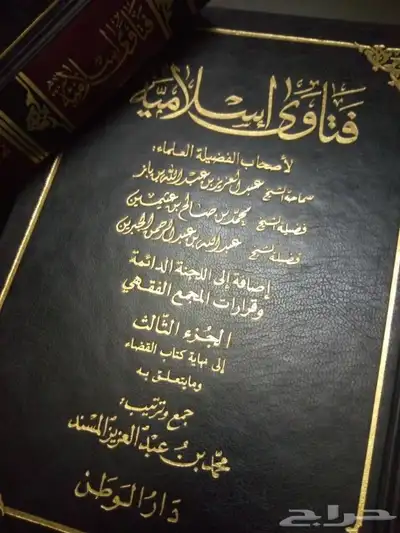 فتاوى إسلامية
فتاوى إسلامية
لأصحاب الفضيلة العلماء:
سماحة الشيخ عبد العزيز بن عبد الله بن باز
فضيلة الشيخ محمد بن صالح بن عثيمين
فضيلة الشيخ عبد الله بن عبد الرحمن الجبرين
إضافة إلى اللجنة الدائمة
وقرارات المجمع الفقهي
الجزء الثالث
إلى نهاية كتاب القضاء
وما يتعلق به
جمع وترتيب:
محمد بن عبد العزيز المسند
دار الوطن
حراج